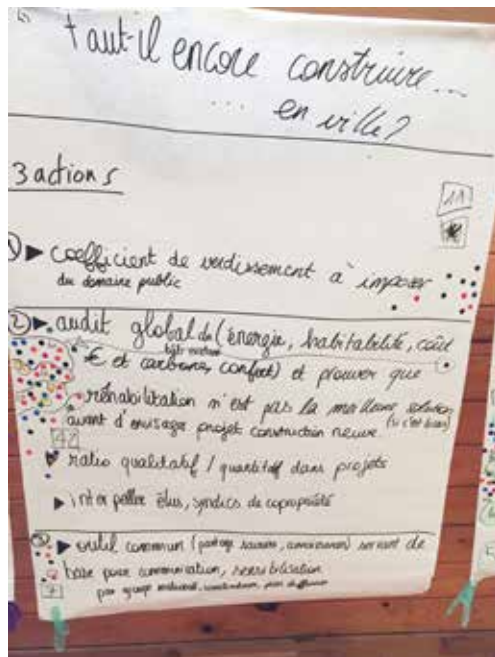 faut-il encore construire...
... en ville?
3 actions
11
1) ► coefficient de verdissement à imposer
du domaine public
2) ► audit global du (énergie, habitabilité, coût
bâti existant
€ et carbone, confort) et prouver que
réhabilitation n'est pas la meilleure solution
(si c'est le cas)
avant d'envisager projet construction neuve.
42
ratio qualitatif / quantitatif dans projets
► interpeller élus, syndics de copropriété
3) ► outil commun (partage savoirs, connaissances) servant de
base pour communication, sensibilisation
7
par groupe